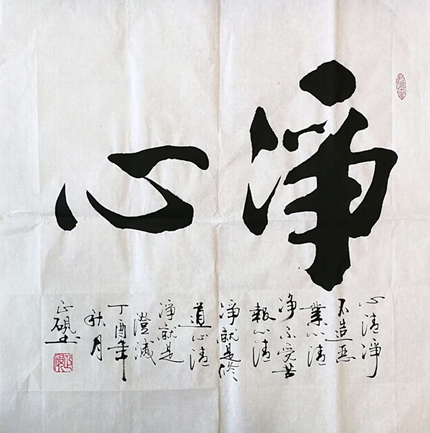 淨心
心清淨
不造惡
業心清
淨不受苦
報心清
淨就是修
道心清
淨就是
澄滅
丁酉年
秋月
正硯书